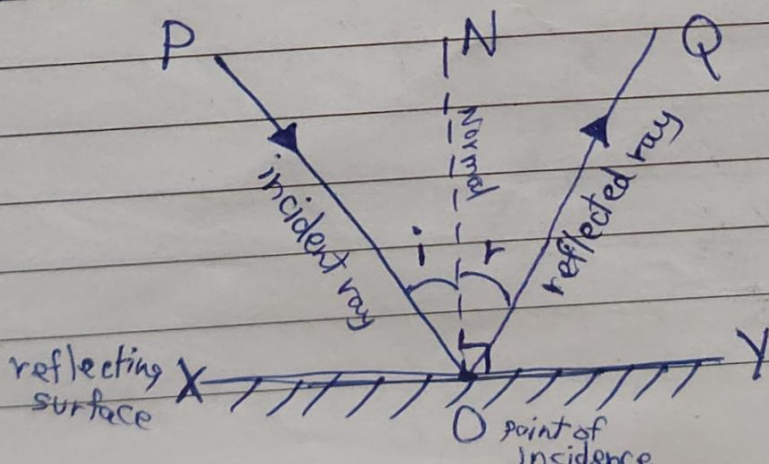 P
N
Q
Normal
incident ray
reflected ray
i
r
reflecting
surface
X
Y
O
point of
incidence